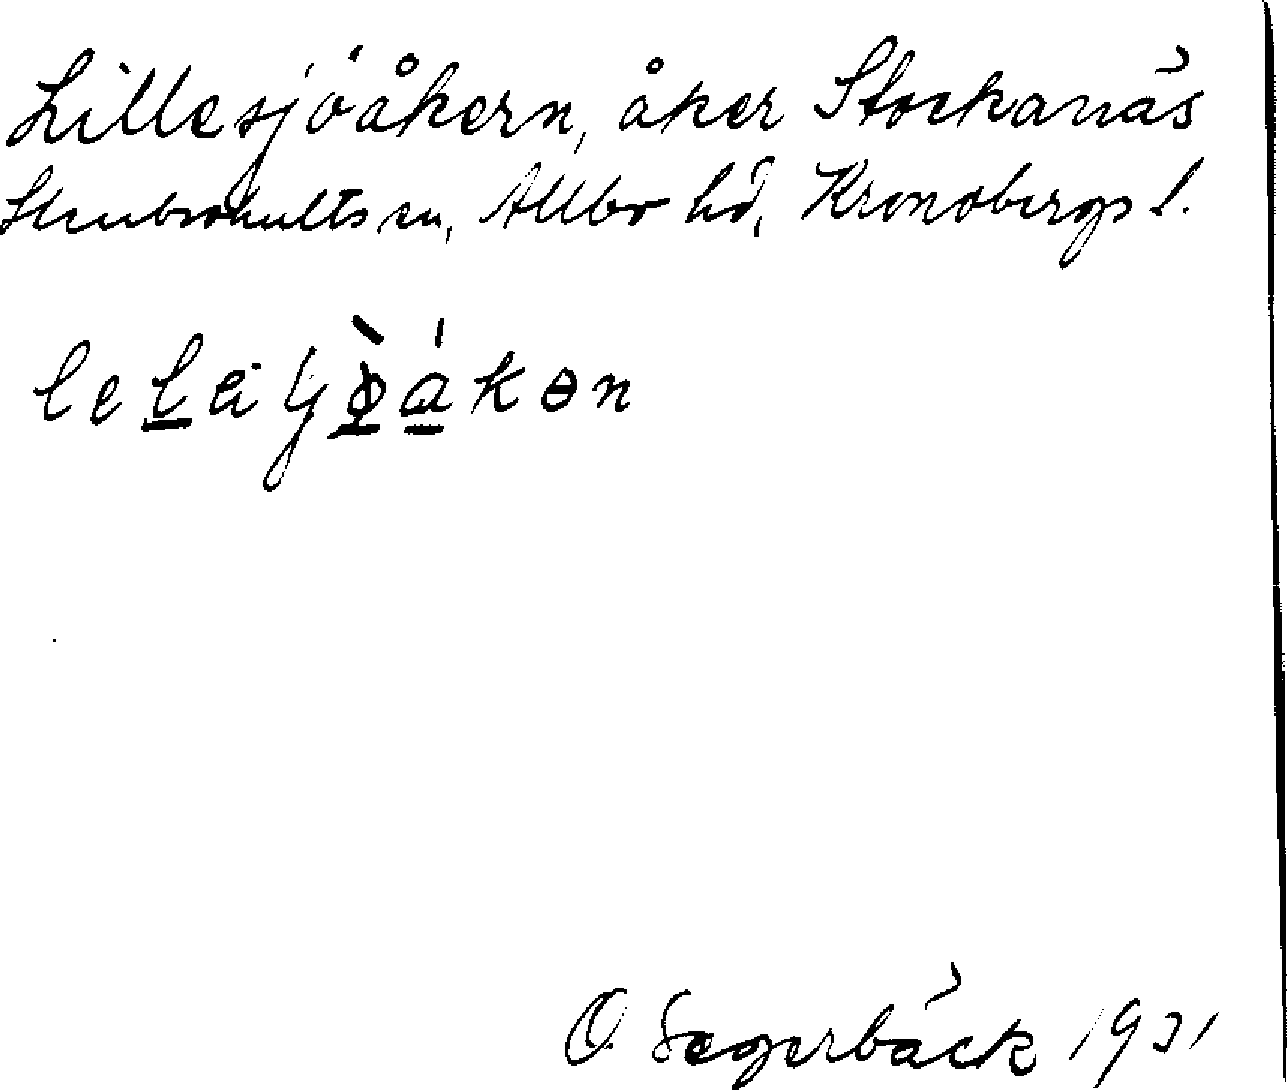 Lillesjöåkern, åker Stockanäs
Stenbrohults sn, Allbo hd, Kronobergs l.
O. Sagerbäck 1931